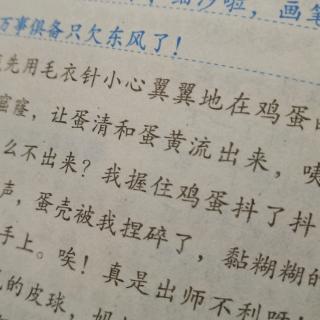 细沙啦，画笔
万事俱备只欠东风了！
先用毛衣针小心翼翼地在鸡蛋
窟窿，让蛋清和蛋黄流出来，咦
么不出来？我握住鸡蛋抖了抖
声，蛋壳被我捏碎了，黏糊糊的
手上。唉！真是出师不利呀！
的皮球，妈